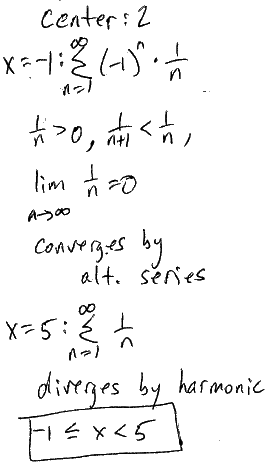 center: 2
x=-1: ∞∑n=1 (-1)^n · 1/n
1/n > 0, 1/(n+1) < 1/n,
lim n→∞ 1/n = 0
converges by
alt. series
x=5: ∞∑n=1 1/n
diverges by harmonic
-1 ≤ x < 5